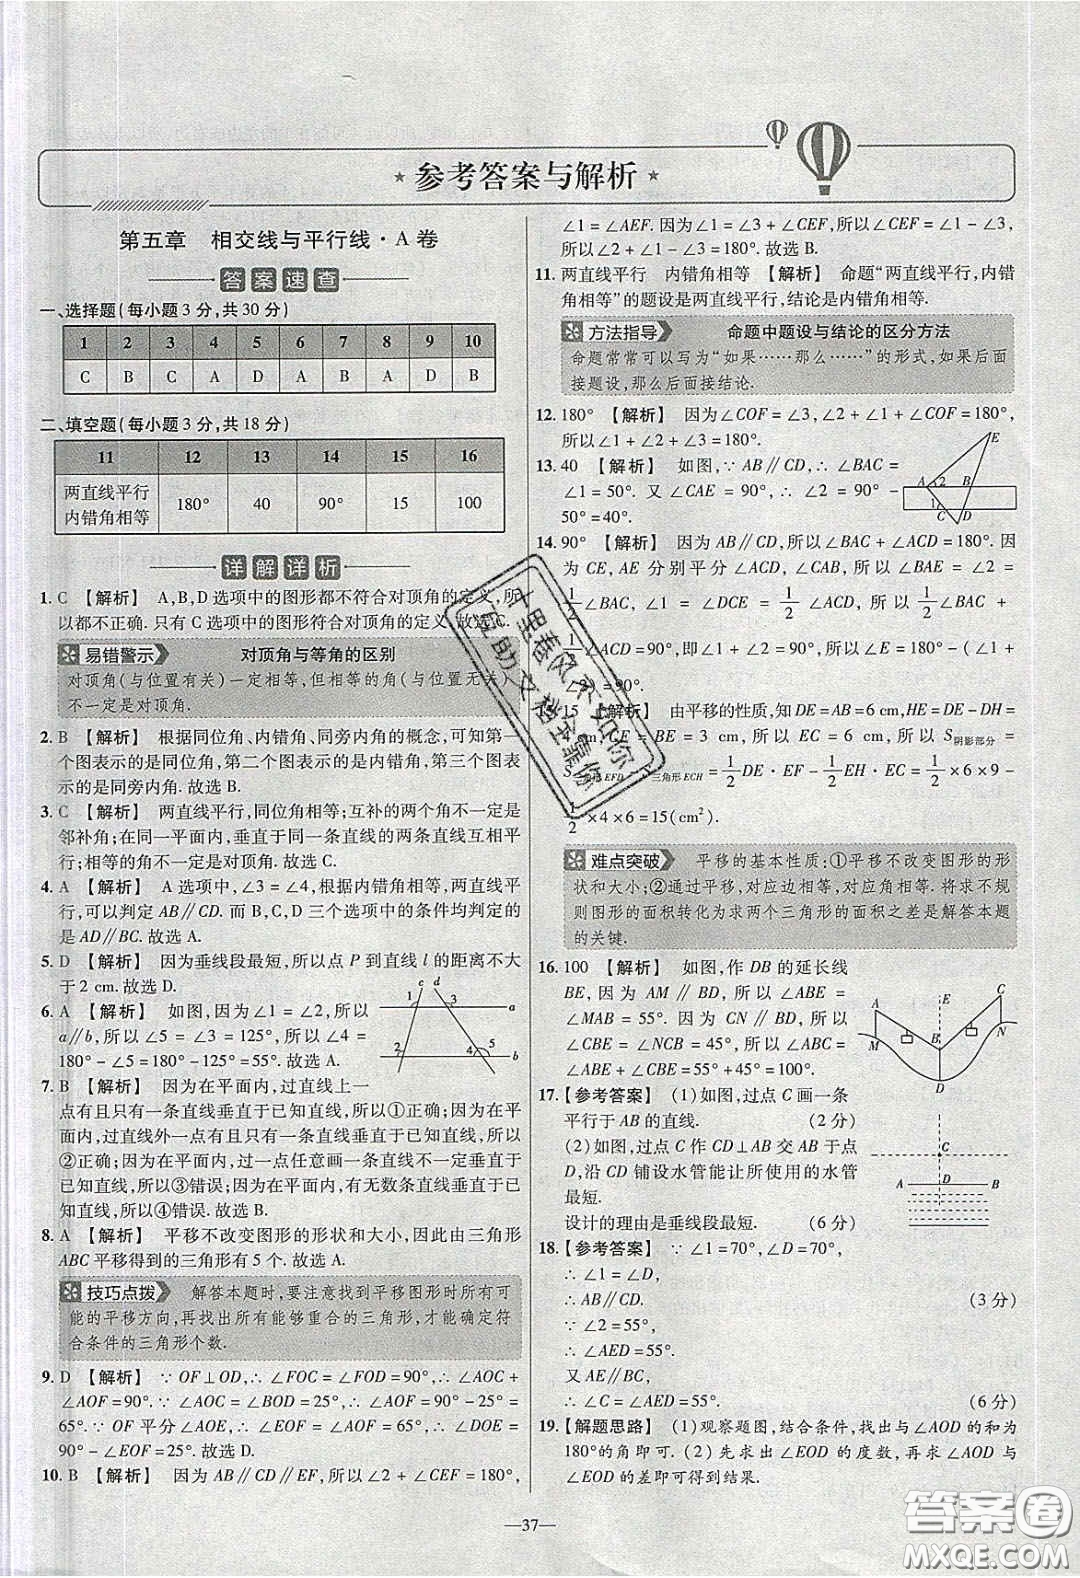 参考答案与解析
第五章 相交线与平行线·A卷
答案速查
一、选择题(每小题3分,共30分)
1 2 3 4 5 6 7 8 9 10
C B C A D A B A D B
二、填空题(每小题3分,共18分)
11 12 13 14 15 16
两直线平行
内错角相等 180° 40 90° 15 100
详解详析
1. C 【解析】 A,B,D选项中的图形都不符合对顶角的定义,所
以都不正确.只有C选项中的图形符合对顶角的定义.故选C.
易错警示 对顶角与等角的区别
对顶角(与位置有关)一定相等,但相等的角(与位置无关)
不一定是对顶角.
2. B 【解析】 根据同位角、内错角、同旁内角的概念,可知第一
个图表示的是同位角,第二个图表示的是内错角,第三个图表
示的是同旁内角.故选B.
3. C 【解析】 两直线平行,同位角相等;互补的两个角不一定是
邻补角;在同一平面内,垂直于同一条直线的两条直线互相平
行;相等的角不一定是对顶角.故选C.
4. A 【解析】 A选项中,∠3=∠4,根据内错角相等,两直线平
行,可以判定AB∥CD.而B,C,D三个选项中的条件均判定的
是AD∥BC.故选A.
5. D 【解析】 因为垂线段最短,所以点P到直线l的距离不大
于2 cm.故选D.
6. A 【解析】 因为∠1=∠2,所以
a∥b,所以∠5=∠3=125°,所以∠4=
180°-∠5=180°-125°=55°.故选A.
c d
1 3 a
2 4 5 b
7. B 【解析】 因为在平面内,过直线上一
点有且只有一条直线垂直于已知直线,所以①正确;因为在平
面内,过直线外一点有且只有一条直线垂直于已知直线,所以
②正确;因为在平面内,过一点任意画一条直线不一定垂直于
已知直线,所以③错误;因为在平面内,有无数条直线垂直于已
知直线,所以④错误.故选B.
8. A 【解析】 平移不改变图形的形状和大小,因此由三角形
ABC平移得到的三角形有5个.故选A.
技巧点拨 解答本题时,要注意找到平移图形时所有可
能的平移方向,再找出所有能够重合的三角形,才能确定符
合条件的三角形个数.
9. D 【解析】 ∵OF⊥OD,∴∠FOC=∠FOD=90°,∴∠AOC+
∠AOF=90°.∵∠AOC=∠BOD=25°,∴∠AOF=90°-25°=
65°.∵OF平分∠AOE,∴∠EOF=∠AOF=65°,∴∠DOE=
90°-∠EOF=25°.故选D.
10. B 【解析】 因为AB∥CD∥EF,所以∠2+∠CEF=180°,
∠1=∠AEF.因为∠1=∠3+∠CEF,所以∠CEF=∠1-∠3,
所以∠2+∠1-∠3=180°.故选B.
11. 两直线平行 内错角相等 【解析】 命题“两直线平行,内错
角相等”的题设是两直线平行,结论是内错角相等.
方法指导 命题中题设与结论的区分方法
命题常常可以写为“如果……那么……”的形式,如果后面
接题设,那么后面接结论.
12. 180° 【解析】 因为∠COF=∠3,∠2+∠1+∠COF=180°,
所以∠1+∠2+∠3=180°.
13. 40 【解析】 如图,∵AB∥CD,∴∠BAC=
∠1=50°.又∠CAE=90°,∴∠2=90°-
50°=40°.
E
A 2 B
1
C D
14. 90° 【解析】 因为AB∥CD,所以∠BAC+∠ACD=180°.因
为CE,AE分别平分∠ACD,∠BAC,所以∠BAE=∠2=
1/2∠BAC,∠1=∠DCE=1/2∠ACD,所以∠1+∠2=
1/2(∠BAC+∠ACD)=90°,即∠1+∠2=90°,所以∠E=180°-(∠1+
∠2)=90°.
15. 15 【解析】 由平移的性质,知DE=AB=6 cm,HE=DE-DH=
cm,CF=BE=3 cm,所以EC=6 cm,所以S阴影部分=
EFD 三角形ECH=1/2DE·EF-1/2EH·EC=1/2×6×9-
1/2×4×6=15(cm²).
难点突破 平移的基本性质:①平移不改变图形的形
状和大小;②通过平移,对应边相等,对应角相等.将求不规
则图形的面积转化为求两个三角形的面积之差是解答本题
的关键.
16. 100 【解析】 如图,作DB的延长线
BE,因为AM∥BD,所以∠ABE=
∠MAB=55°.因为CN∥BD,所以
∠CBE=∠NCB=45°,所以∠ABC=
∠ABE+∠CBE=55°+45°=100°.
A E C
M B N
D
17. 【参考答案】 (1)如图,过点C画一条
平行于AB的直线. (2分)
(2)如图,过点C作CD⊥AB交AB于点
D,沿CD铺设水管能让所使用的水管
最短.
设计的理由是垂线段最短. (6分)
C
A D B
18. 【参考答案】 ∵∠1=70°,∠D=70°,
∴∠1=∠D,
∴AB∥CD. (3分)
∵∠2=55°,
∴∠AED=55°.
又AE∥BC,
∴∠C=∠AED=55°. (6分)
19. 【解题思路】 (1)观察题图,结合条件,找出与∠AOD的和为
180°的角即可.(2)先求出∠EOD的度数,再求∠AOD与
∠EOD的差即可得到结果.
—37—
十里春风不如你
互助文档全靠你
答案圈
MXQE.COM